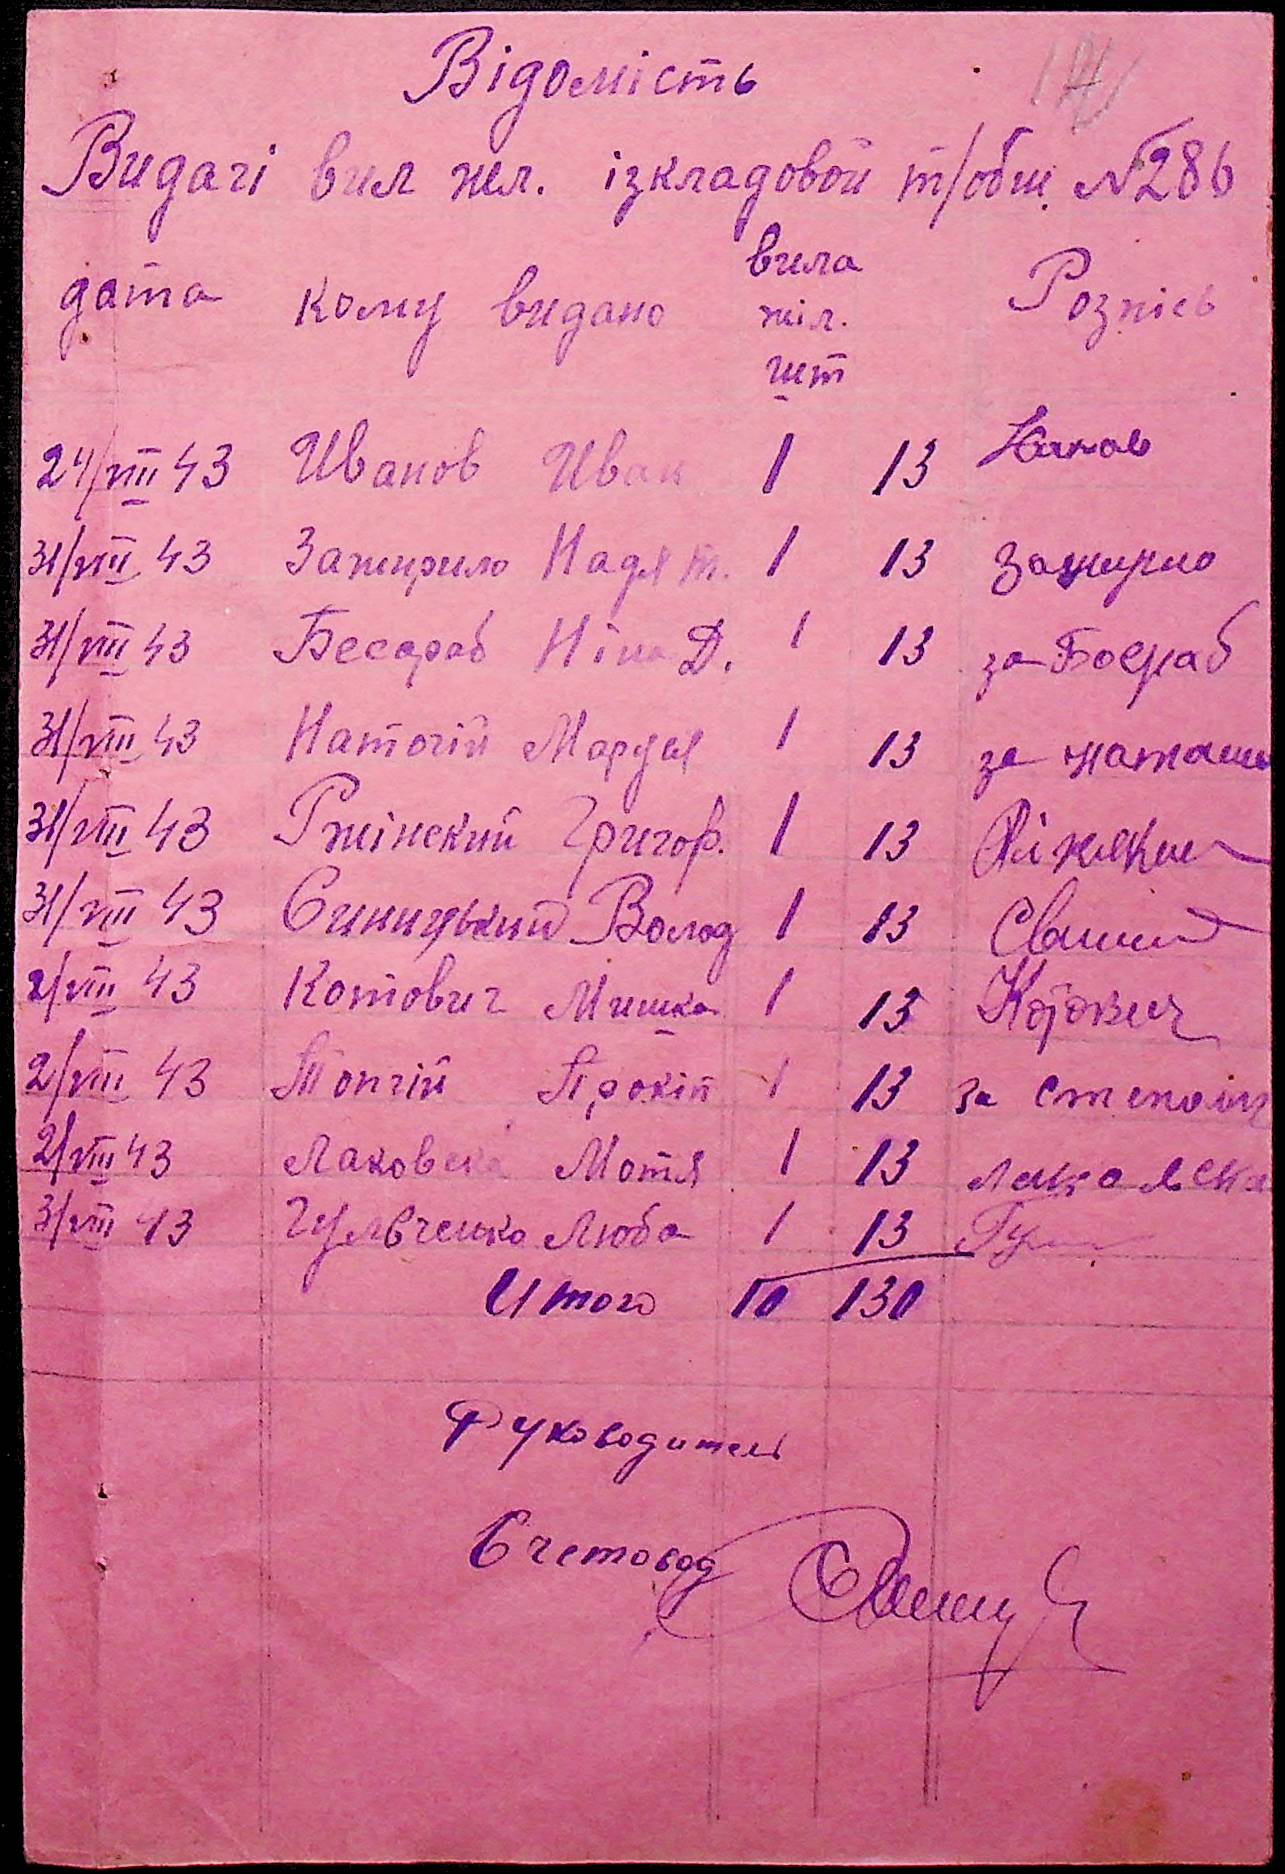 Відомість
Видачі вил жел. ізкладовой т/общ. №286
дата кому видано вила жіл. шт Розпісь
24/VIII 43 Иванов Иван 1 13
31/VIII 43 Зажирило Надя Т. 1 13 Зажирио
31/VIII 43 Бесараб Ніна Д. 1 13 за Босраб
31/VIII 43 Натогій Маруся 1 13 за
31/VIII 43 Ржінский Григор. 1 13
31/VIII 43 Синицький Волод 1 13
2/VIII 43 Котович Мишка 1 13 Котович
2/VIII 43 Топчій Прокіп 1 13 за
2/VIII 43 Лаковска Мотя 1 13
3/VIII 43 Гульченко Люба 1 13
Итого 10 130
Руководитель
Счетовод